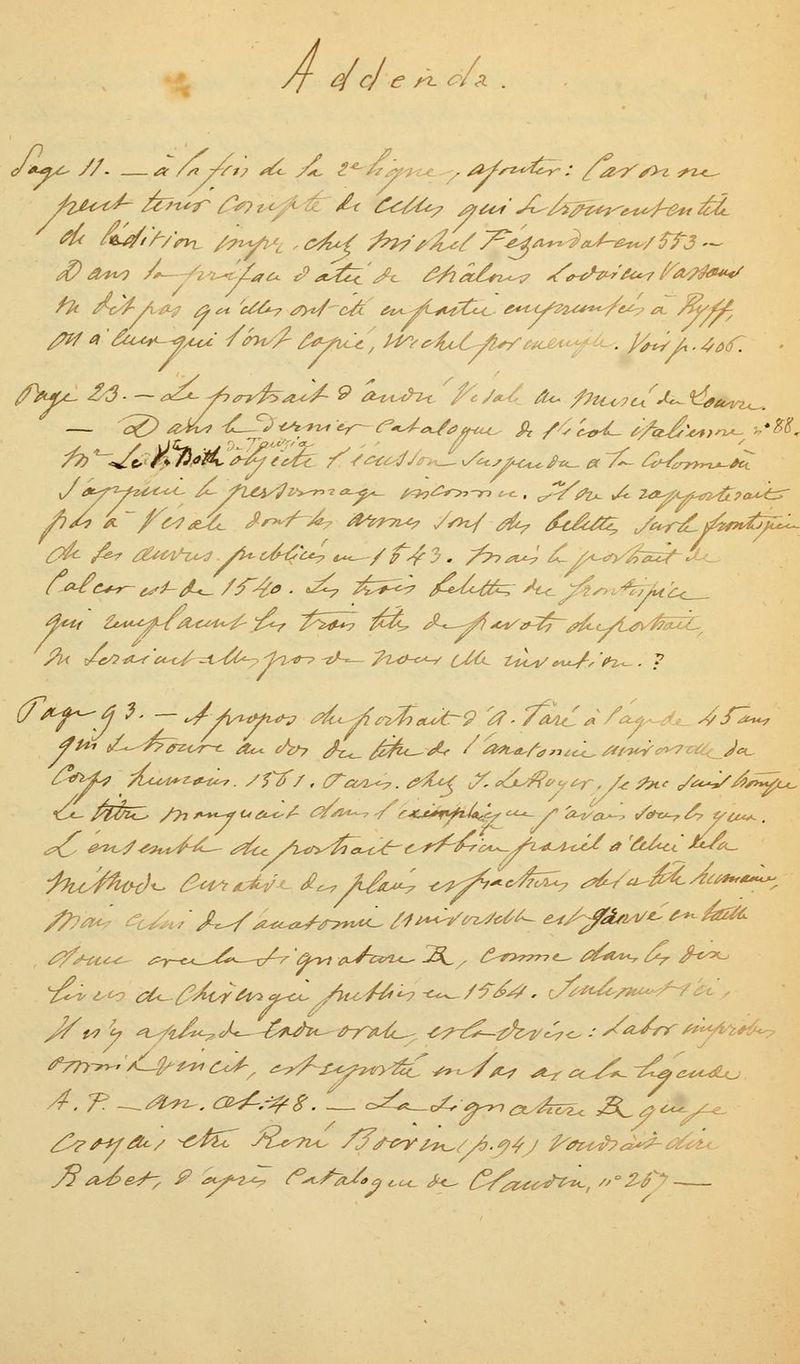 Addenda.
Page 11. — à la fin de la 2e ligne, ajouter: Car on ne
peut tenir compte de celles qui se trouvent en tête
de l'édition impr. chez Michel Fézandat en 1553 —
Dans la préface datée de Châlons Lodoicus Vassaeus
ne dit pas qu'elles ont été en partie empruntées à Ryff,
ou à ceux qui l'ont copié, Wechel par exemple. Voir p. 406.
Page 23. — Le portrait d'André Vésale au Musée du Louvre.
— Dans le dernier catalogue de l'école italienne, n° 88,
Mr Le Vte Both de Tauzia objecte l'écusson suspendu à la colonne où
s'appuie le personnage inconnu. Il ne se rapporterait
pas à Vésale dont les armes sont des belettes sur le frontispice
de ses œuvres publiées en 1543. Mais le portrait de
Calcar est de 1540. Les trois belettes du frontispice
qui remplacent les trois têtes de pavots du portrait,
ne seraient-elles pas de nouvelle invention. ?
Page 93. — A propos du portrait d'A. Paré à l'âge de 45 ans
qui se trouve au dos du titre de l'anatomie universelle du
Corps humain. 1561. Paris. chez J. Le Royer, je me suis trompé
Le titre manquait dans l'exemplaire que j'avais sous les yeux.
L'ensemble du portrait est bien pareil à celui de la
Méthode Curative des plaies et fractures de la tête humaine,
Mais celui de l'anatomie Universelle est gravé en taille
douce avec la signature R, comme dans les dix
livres de Chirurgie publiés en 1564. Seulement ici,
Il n'y a plus de bordure ovale, et la devise: Labor improbus
omnia vincit, est reportée en bas avec la légende
A. P. — An. Æt: 48. — La signature R que je
croyais être René Boivin (p. 94) voudrait dire
Rabet, d'après Catalogue de Claudin, n° 267 —